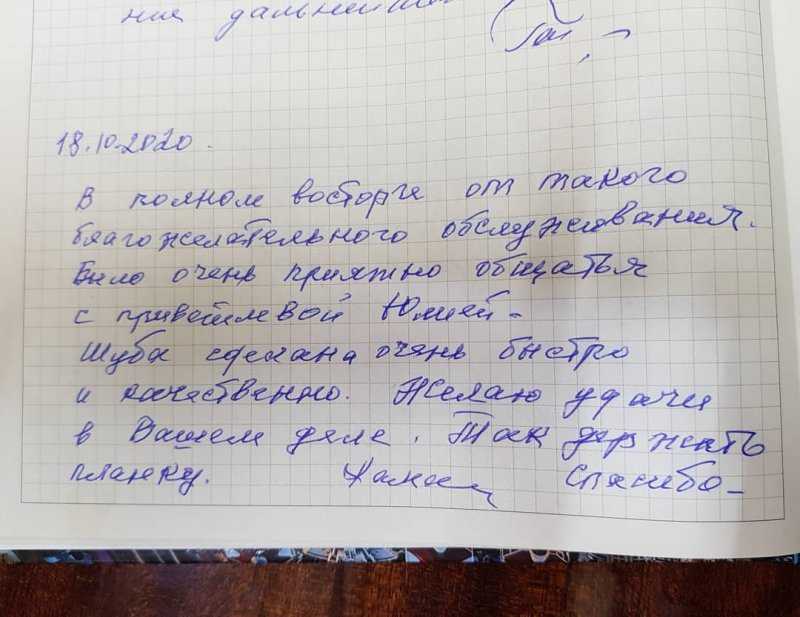 ния дальнейш
18.10.2020.
В полном восторге от такого
благожелательного обслуживания.
Было очень приятно общаться
с приветливой Юлией.
Шуба сделана очень быстро
и качественно. Желаю удачи
в Вашем деле. Так держать
планку. Спасибо